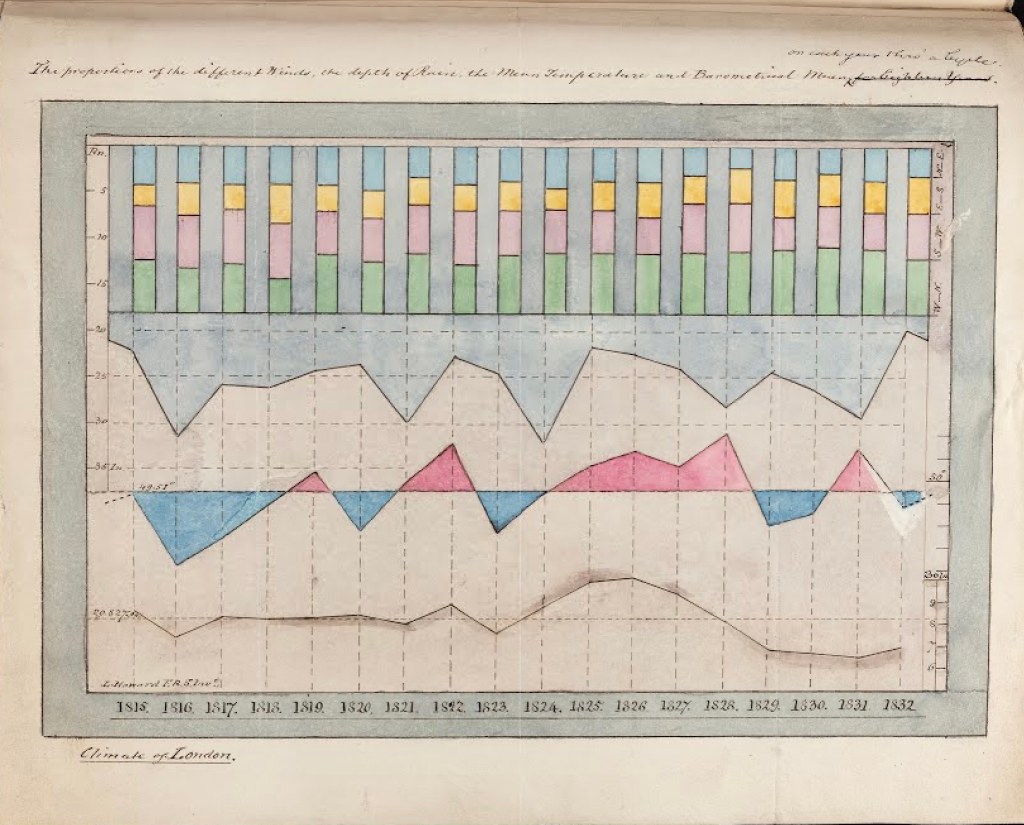 on each year thro' a Cycle.
The proportions of the different Winds, the depth of Rain, the Mean Temperature and Barometrical Mean, for Eighteen Years.
0 In.
N-E.
5
E-S.
10
S-W.
15
W-N.
20
25
30
35 In
50°
49.51°
30 In
29.827 In
9
8
7
6
L. Howard F.R.S. Inv.
1815. 1816. 1817. 1818. 1819. 1820. 1821. 1822. 1823. 1824. 1825. 1826. 1827. 1828. 1829. 1830. 1831. 1832
Climate of London.